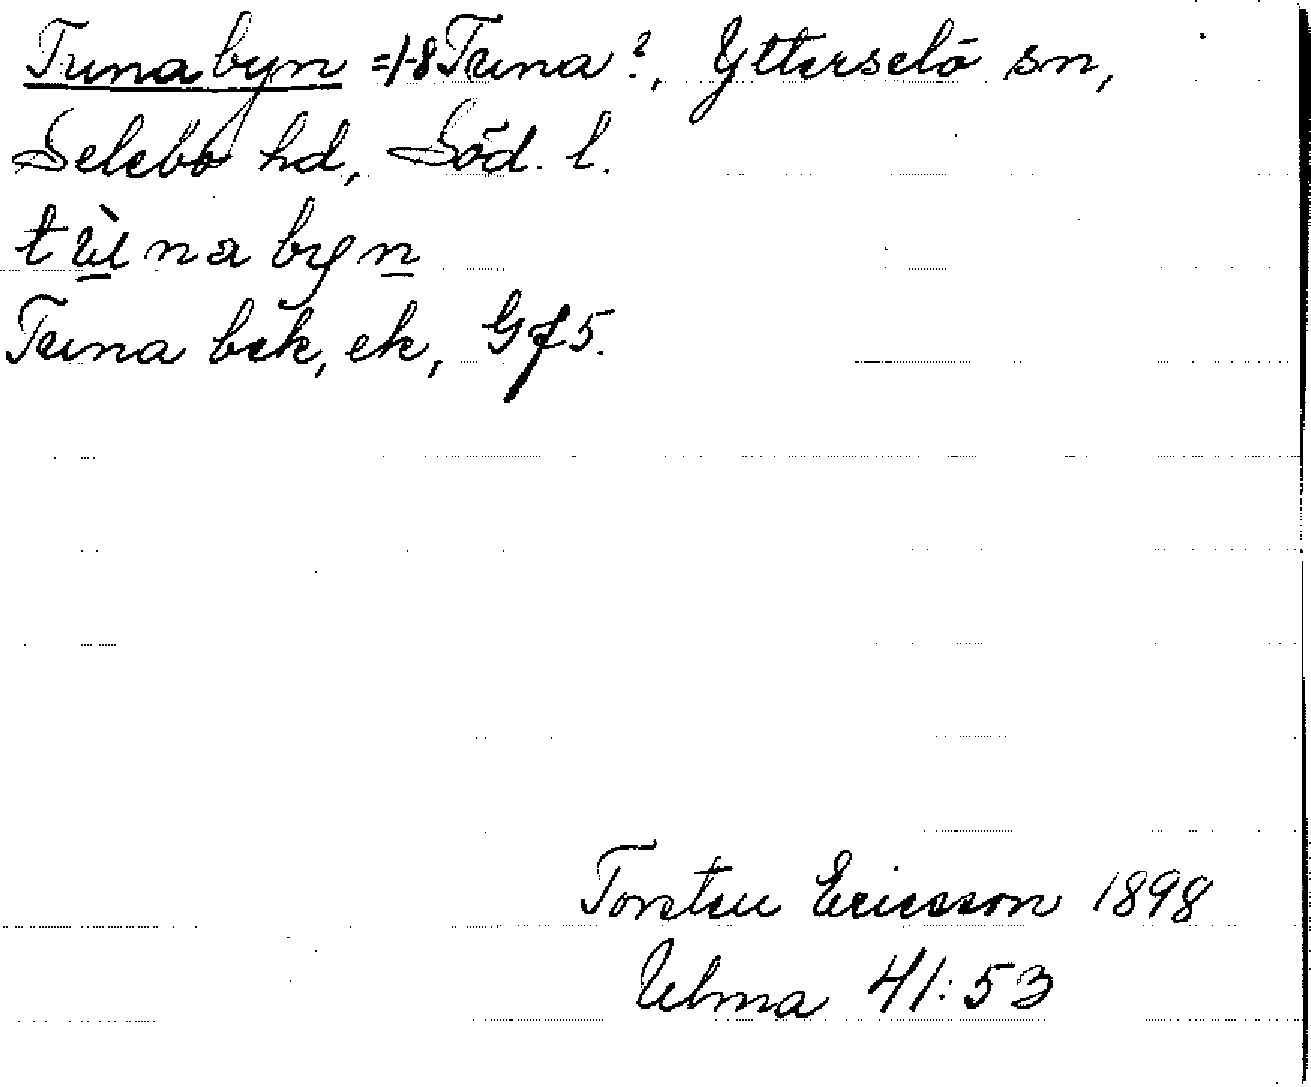 Tunabyn =1-8 Tuna?, Ytterselö sn,
Selebo hd, Söd. l.
tùnabyn
Tuna bek, ek, Gf5.
Torsten Ericsson 1898
Ulma 41:53